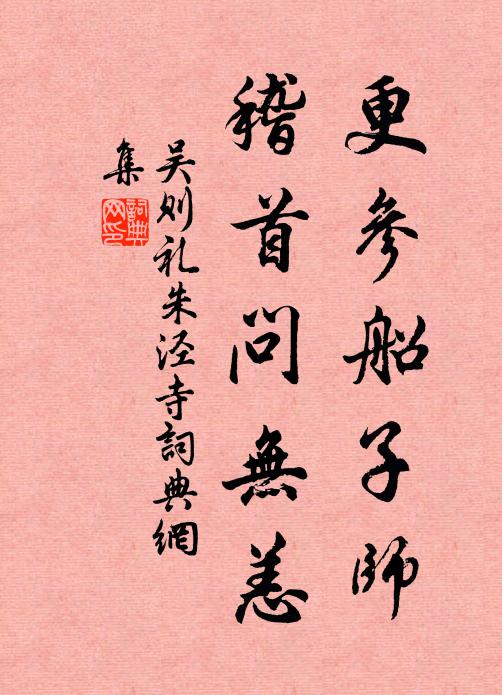 更參船子師
稽首問無恙
吴则礼朱泾寺詞典網
集
詞典
网印